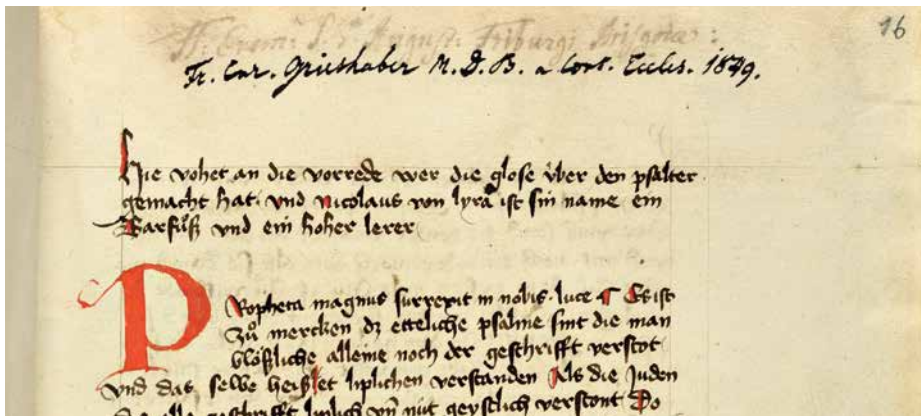 FF. Erem: S. P. August. Friburgi Brisgoiae:
16
Fr. Car. Grieshaber M. D. B. a Cons. Eccles. 1849.
Hie vohet an die vorrede wer die glose v̈ber den psalter
gemacht hat. vnd Nicolaus von lyra ist sin name ein
Barfůß vnd ein hoher lerer
PRopheta magnus surrexit in nobis. luce ¶ Es ist
zů mercken dz etteliche psalme sint die man
blößliche alleine noch der geschrifft verstot
vnd das selbe heisset liplichen verstanden Als die Juden
die alle geschrifft liplich vn̄ nút geystlich verstont Do